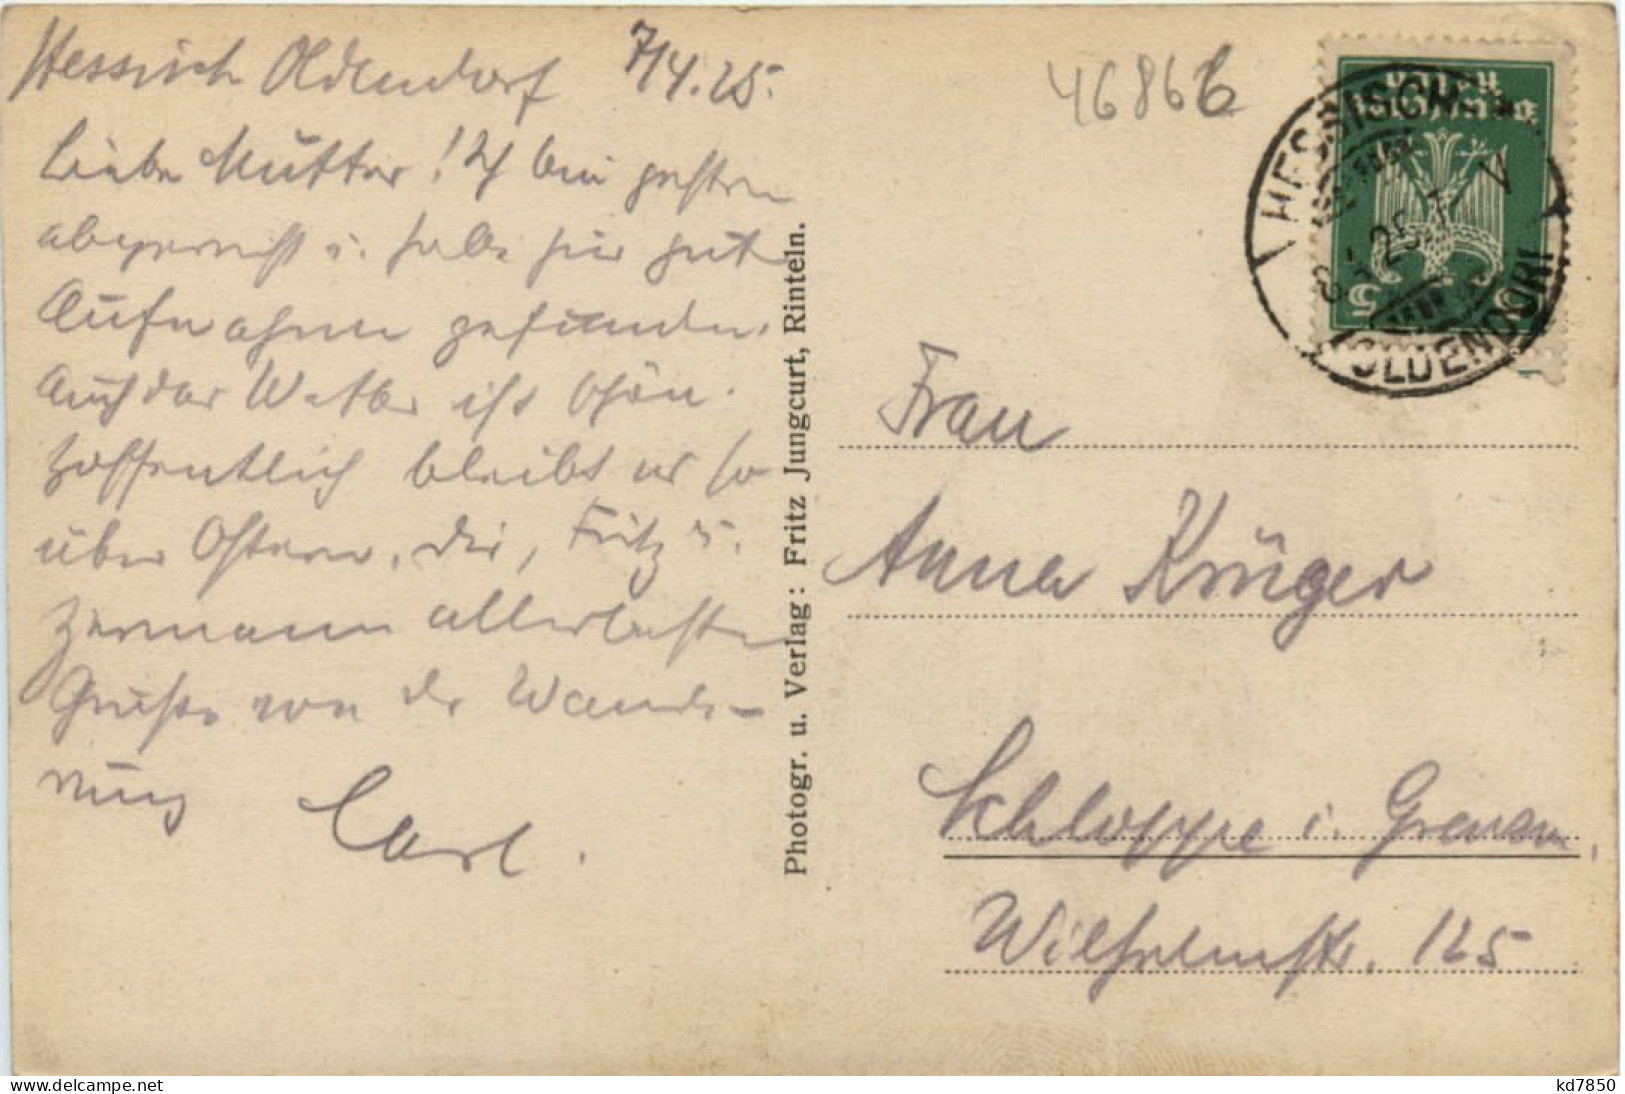 Hessisch Oldendorf 7/4.25.
Liebe Mutter! Ich bin gestern
abgereist u. habe hier gute
Aufnahme gefunden.
Auch das Wetter ist schön.
Hoffentlich bleibt es so
über Ostern. Dir, Fritz u.
Hermann allerbeste
Grüße von der Wande-
rung Carl.
Photogr. u. Verlag: Fritz Jungcurt, Rinteln.
46866
HESSISCH
OLDENDORF
Frau
Anna Krüger
Schloppe i. Grenzm.
Wilhelmstr. 125
kd7850